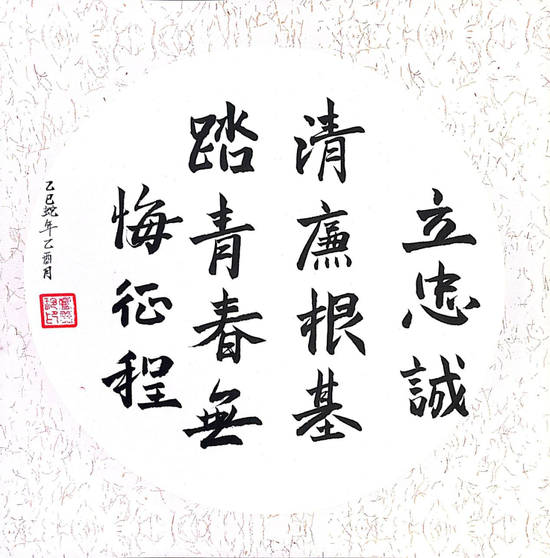 立忠誠
清廉根基
踏青春無
悔征程
乙巳蛇年乙酉月